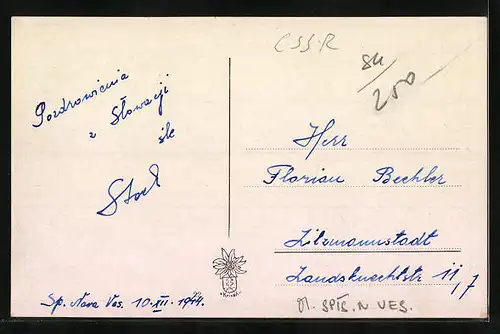 ČSSR
84/200
Pozdrowienia
z Słowacji
śle
Stoch
Herr
Florian Bechler
Litzmannstadt
Landsknechtstr 11,7
Sp. Nova Ves. 10.XII.1944.
SPIŠ. N VES.